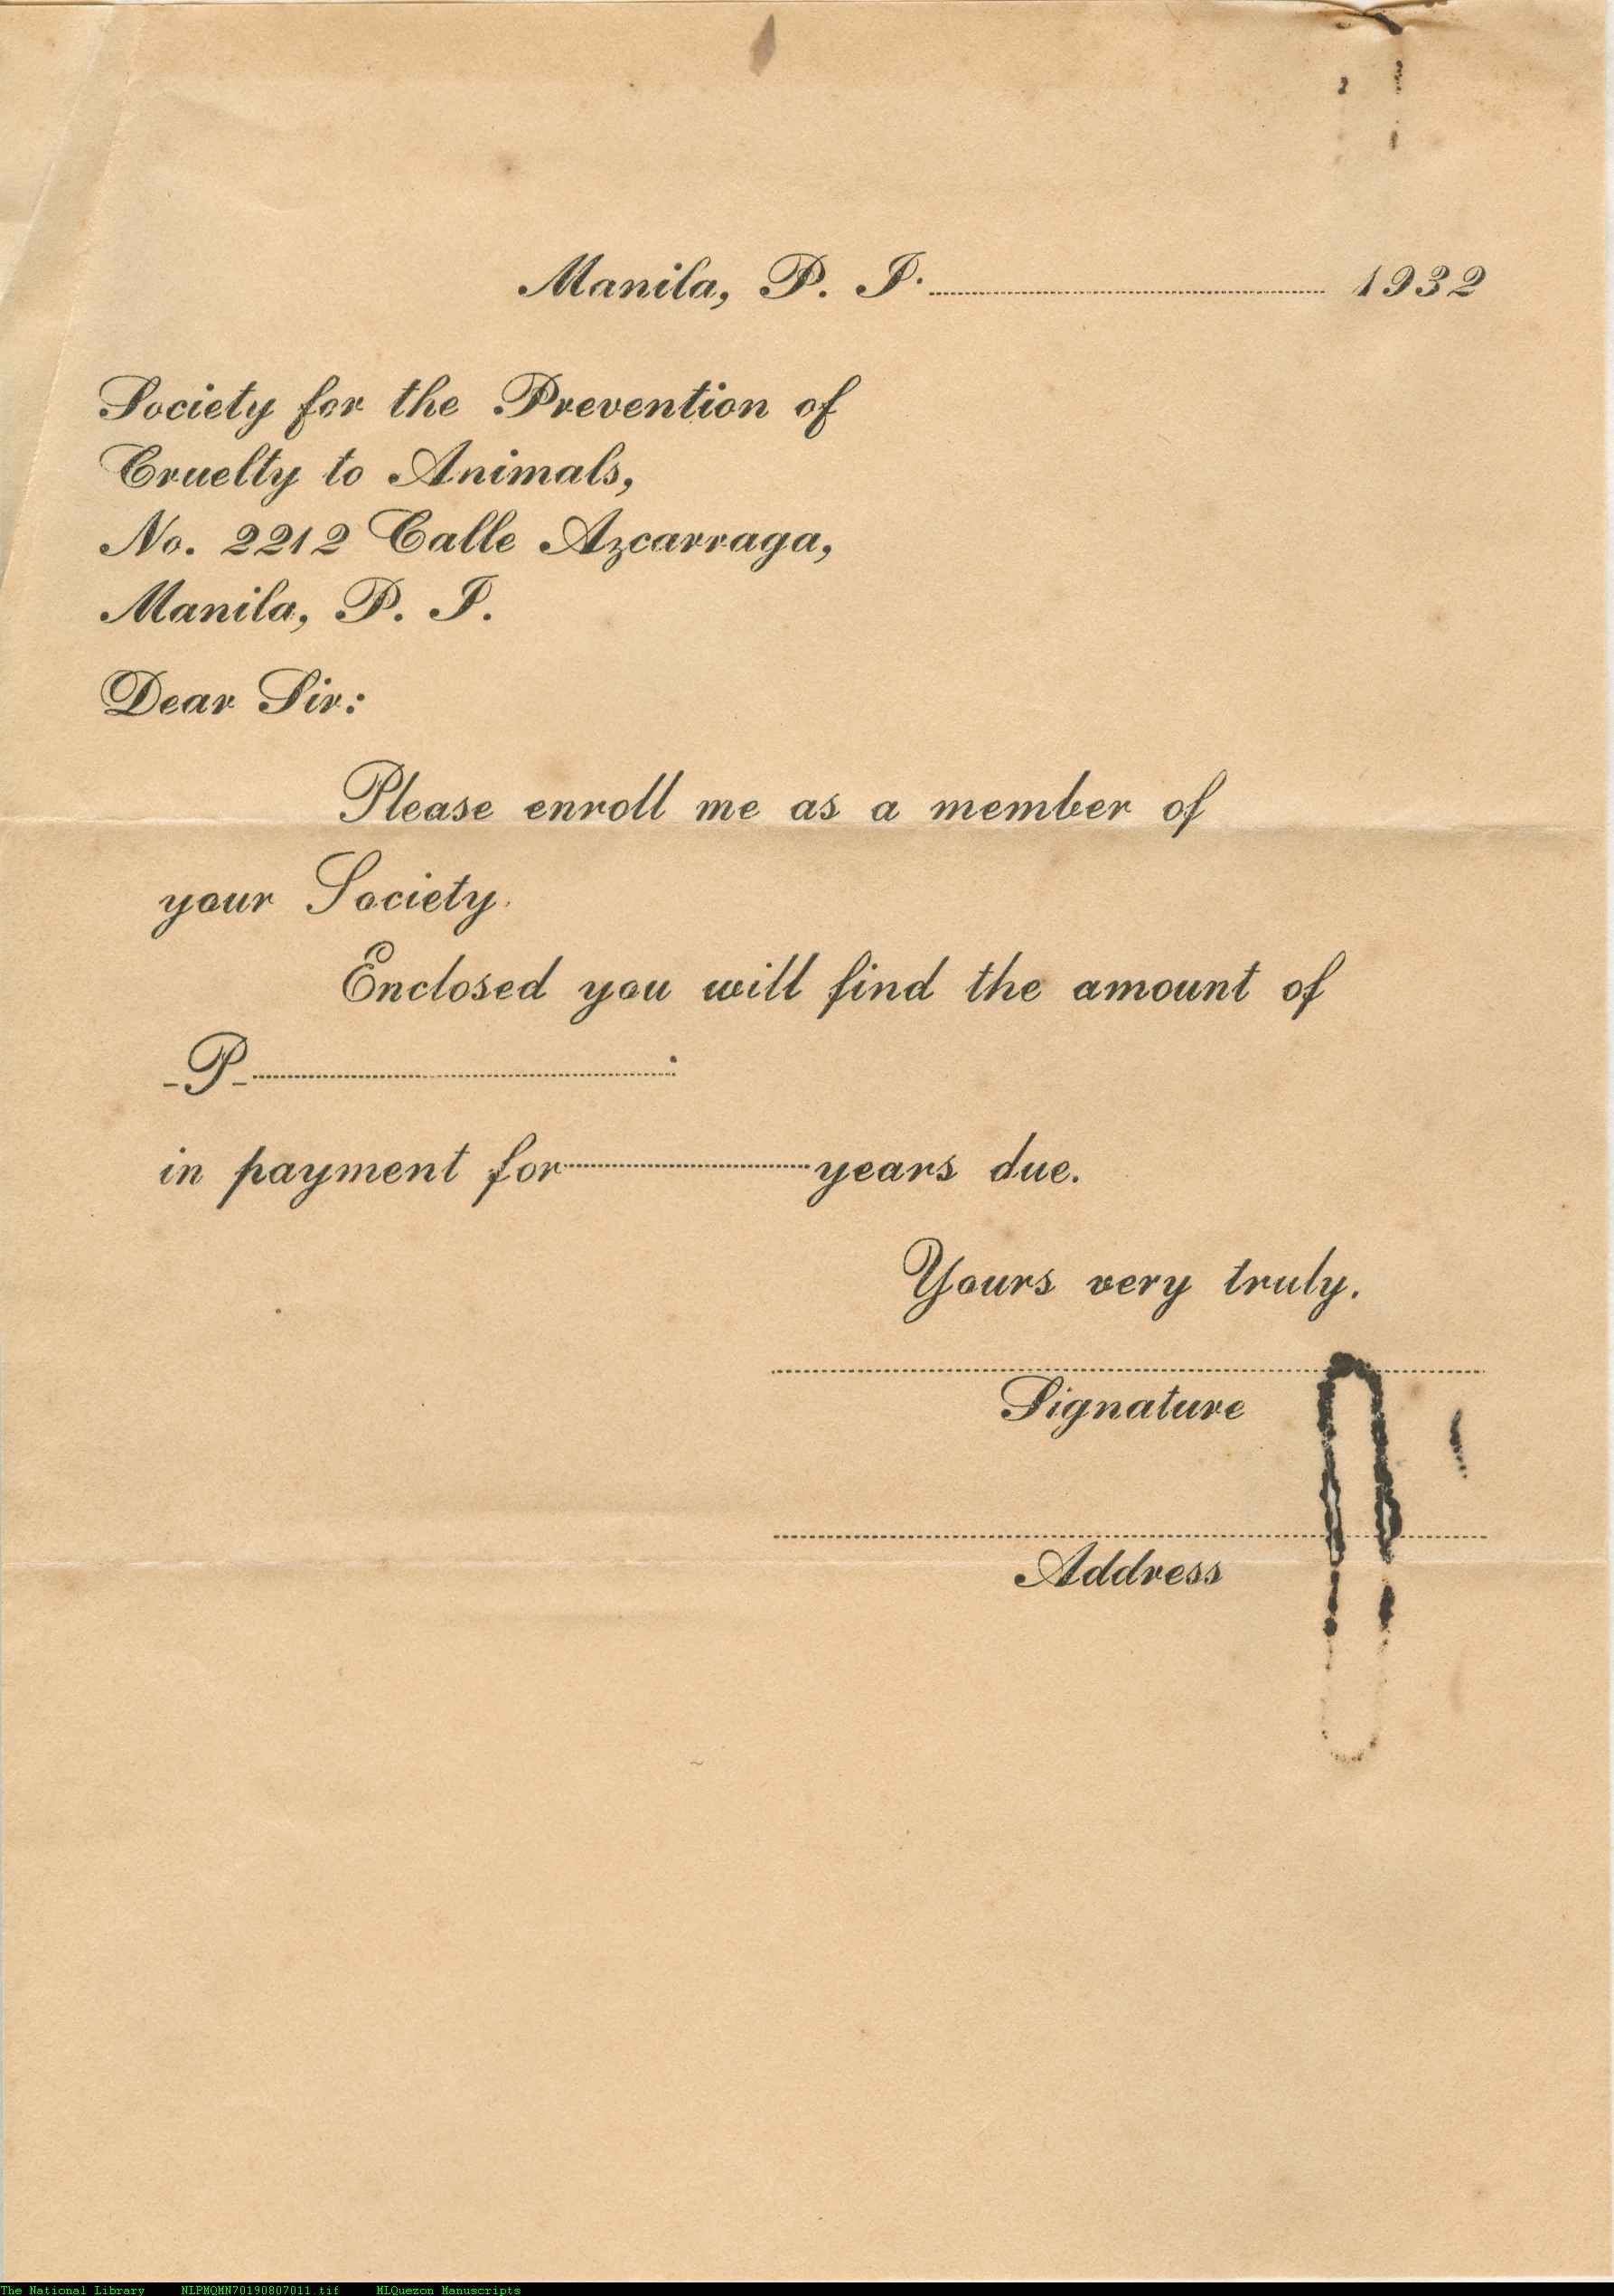 Manila, P. I. 1932
Society for the Prevention of
Cruelty to Animals,
No. 2212 Calle Azcarraga,
Manila, P. I.
Dear Sir:
Please enroll me as a member of
your Society.
Enclosed you will find the amount of
P
in payment for years due.
Yours very truly.
Signature
Address
The National Library NLPMQMN70190807011.tif MLQuezon Manuscripts